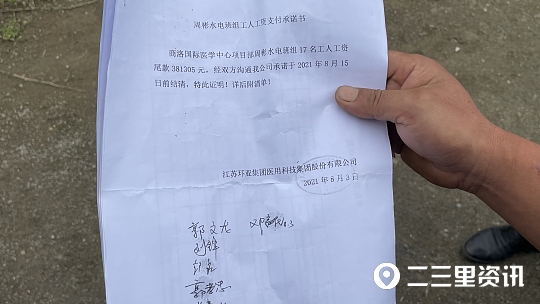 周彬水电班组工人工资支付承诺书
商洛国际医学中心项目部周彬水电班组 17 名工人工资
尾款 381305 元，经双方沟通我公司承诺于 2021 年 8 月 15
日前结清，特此证明！详后附清单！
江苏环亚集团医用科技集团股份有限公司
2021 年 8 月 3 日
郭文龙
刘锋
二三里资讯